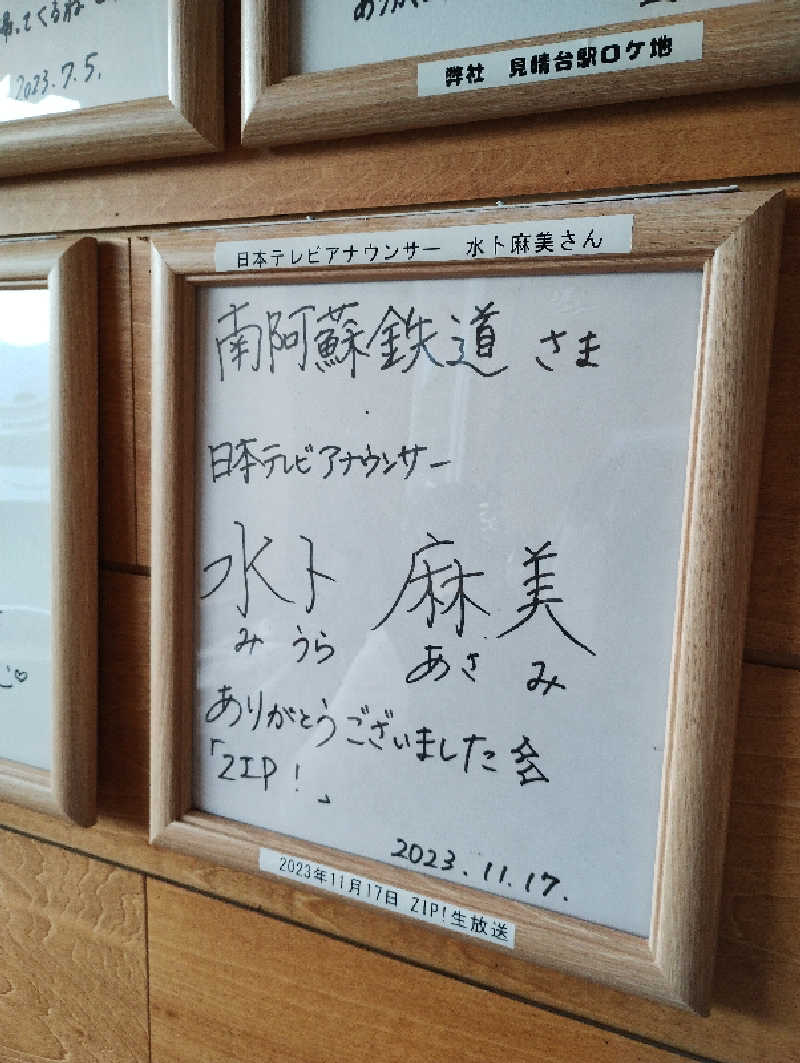 2023.7.5.
弊社 見晴台駅ロケ地
日本テレビアナウンサー 水卜麻美さん
南阿蘇鉄道 さま
日本テレビアナウンサー
水卜 麻美
みうら あさみ
ありがとうございました
「ZIP!」
2023.11.17.
2023年11月17日 ZIP!生放送